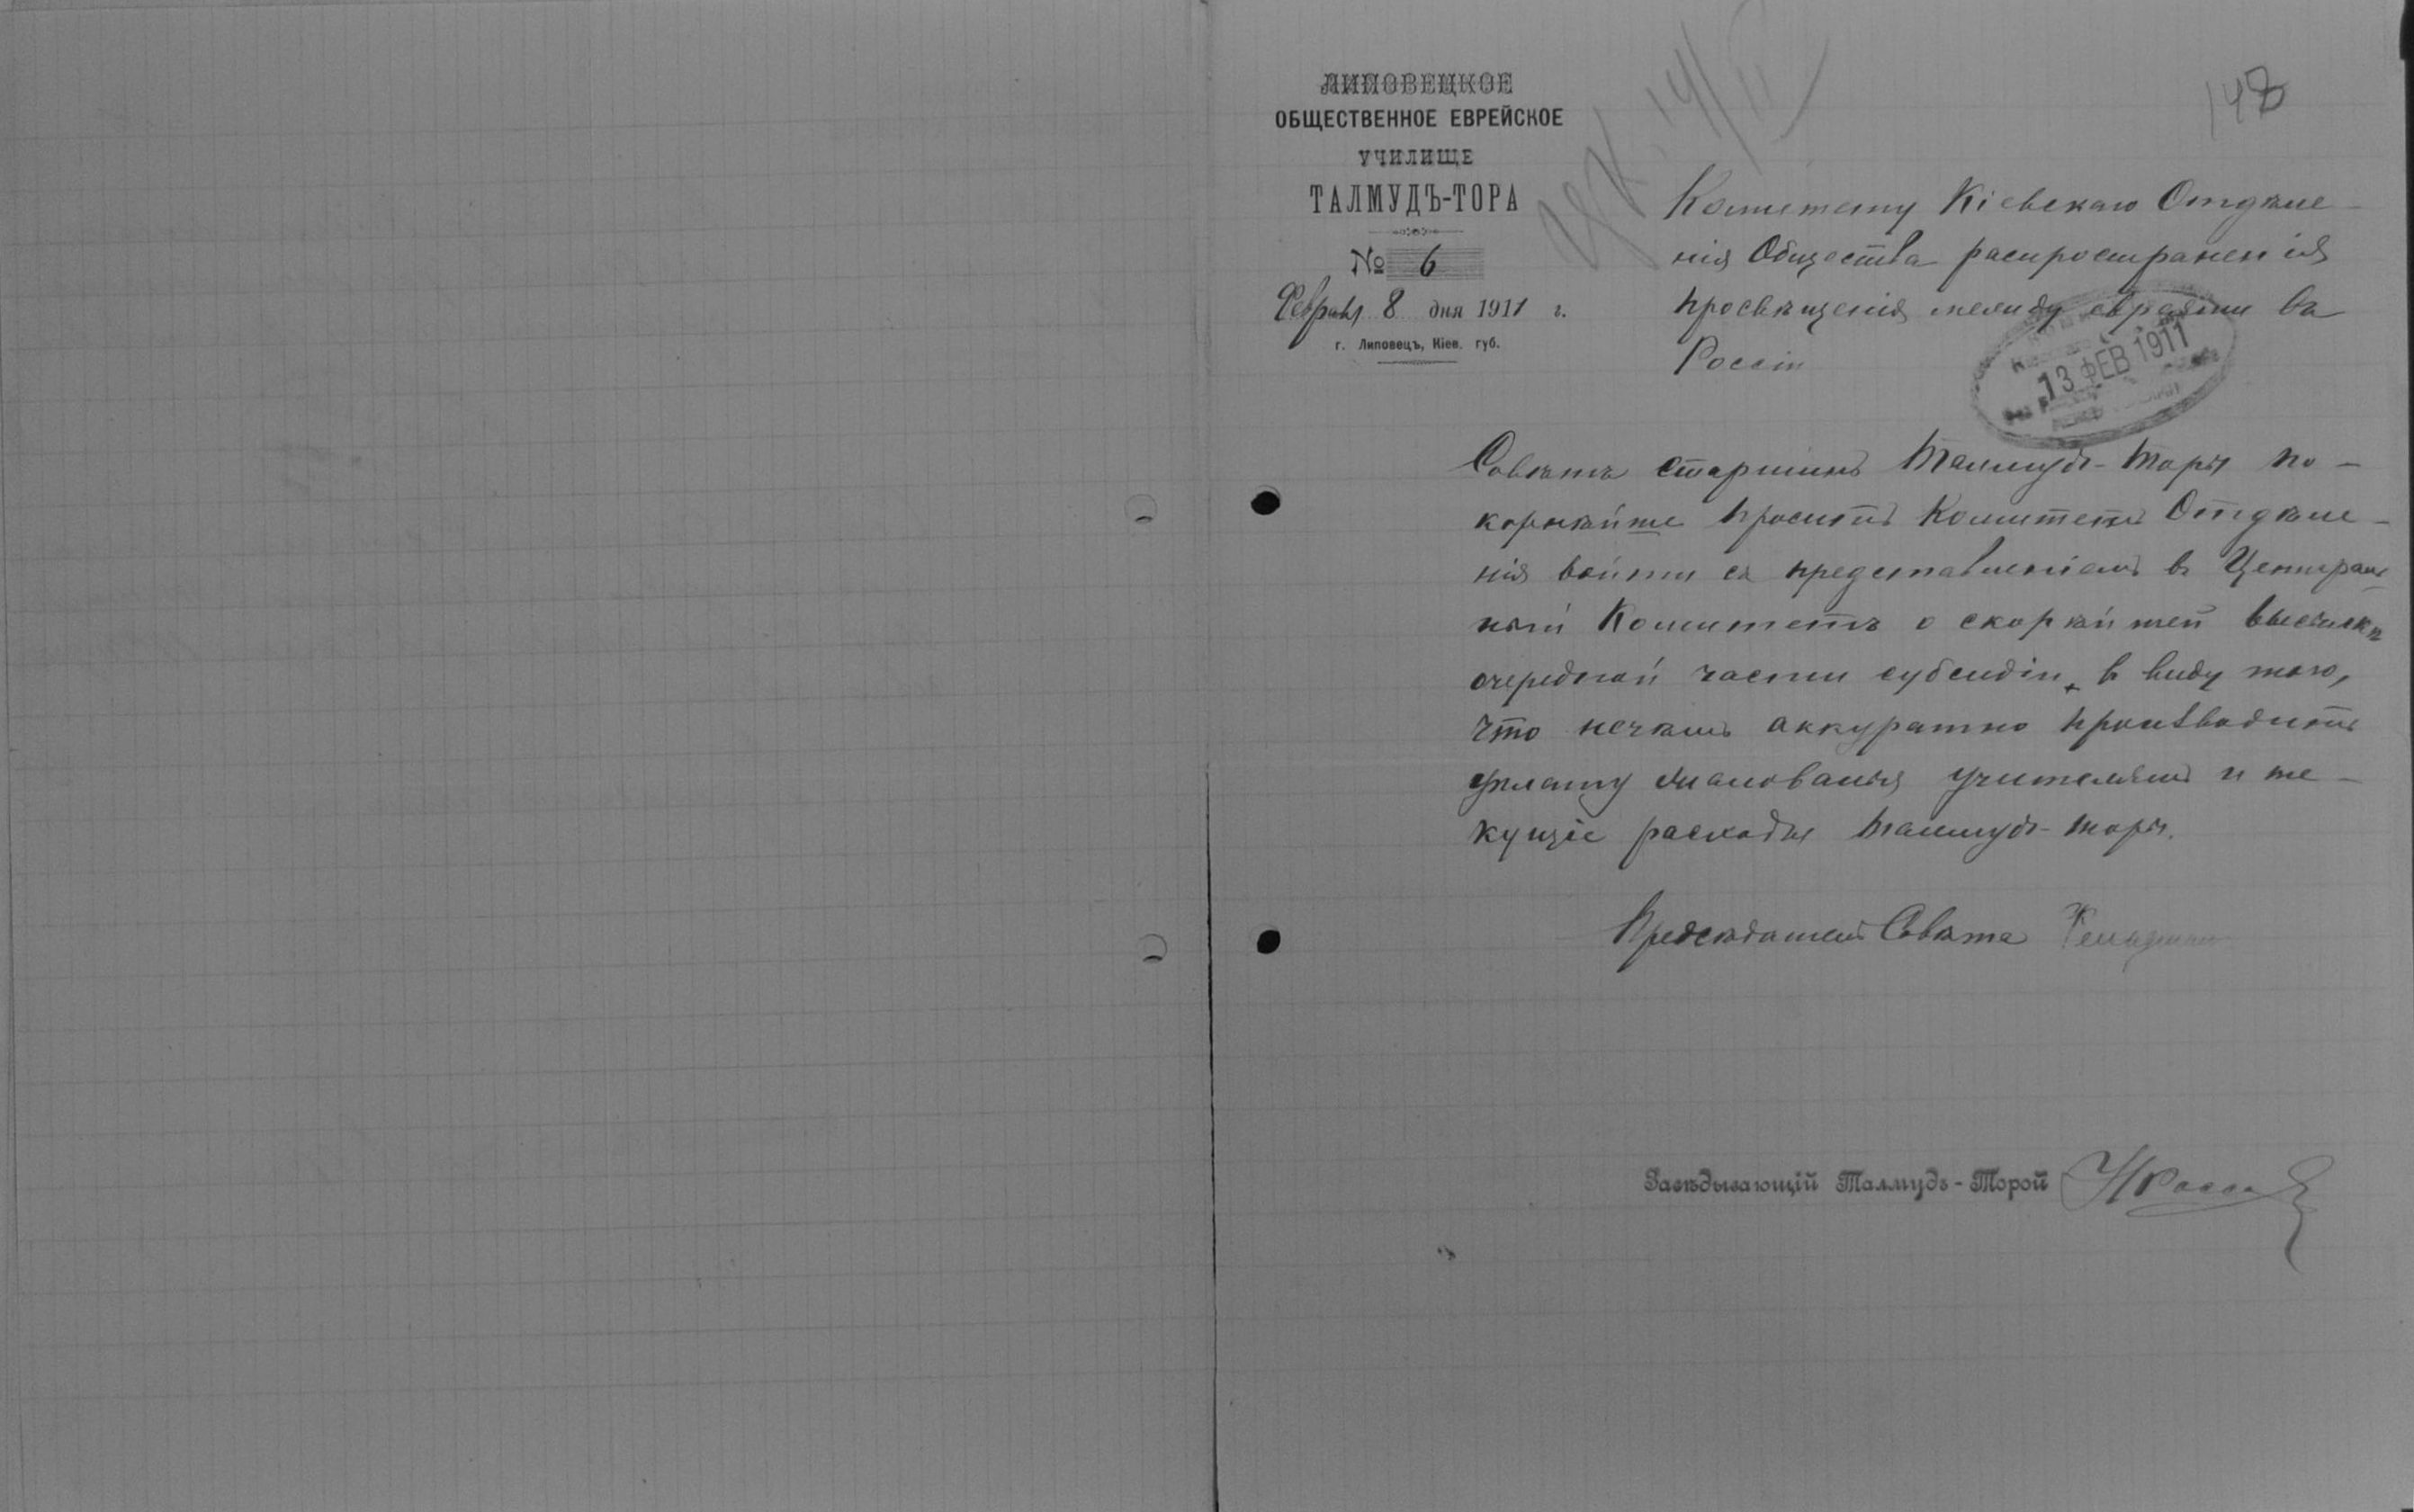 ЛИПОВЕЦКОЕ
ОБЩЕСТВЕННОЕ ЕВРЕЙСКОЕ
УЧИЛИЩЕ
ТАЛМУДЪ-ТОРА
№ 6
Февраля 8 дня 1911 г.
г. Липовецъ, Кіев. губ.
148
Комитету Кіевскаго Отдѣле-
нія Общества распространенія
просвѣщенія между евреями въ
Россіи
13 ФЕВ 1911
Совѣтъ старшинъ Талмудъ-Торы по-
корнѣйше проситъ Комитетъ Отдѣле-
нія войти съ представленіемъ въ Централь-
ный Комитетъ о скорѣйшей высылкѣ
очередной части субсидіи, въ виду того,
что нечѣмъ аккуратно производить
уплату жалованья учителямъ и те-
кущіе расходы Талмудъ-Торы.
Предсѣдатель Совѣта
Завѣдывающій Талмудъ-Торой